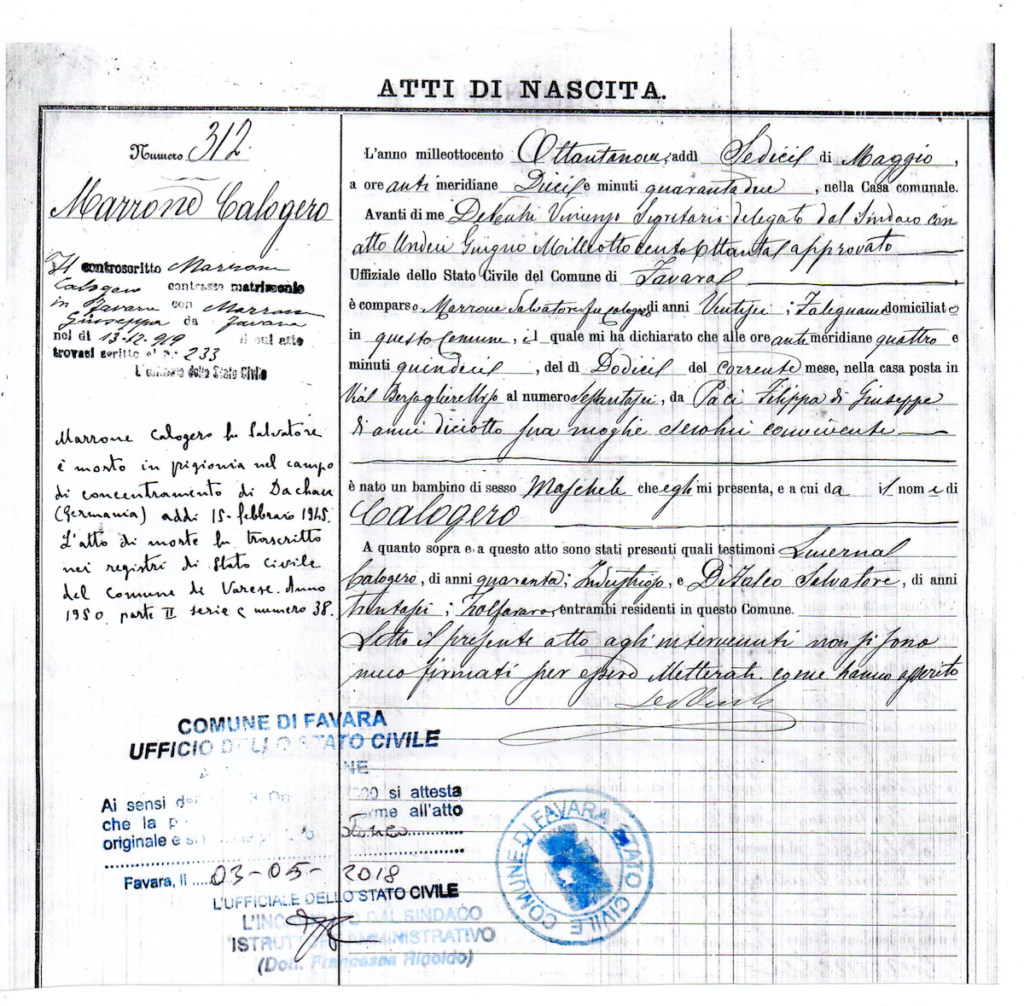 ATTI DI NASCITA.
Numero 312.
Marrone Calogero
Il controscritto Marrone
Calogero contrasse matrimonio
in Favara con Marrone
Giuseppa da Favara
nel dì 13-12-919 il cui atto
trovasi scritto al n. 233
L'ufficiale dello Stato Civile
Marrone Calogero fu Salvatore
è morto in prigionia nel campo
di concentramento di Dachau
(Germania) addì 15-febbraio 1945.
L'atto di morte fu trascritto
nei registri di Stato Civile
del Comune di Varese. Anno
1950. parte II serie C numero 38.
L'anno milleottocento Ottantanove, addì Sedici di Maggio,
a ore anti meridiane Dieci e minuti quarantadue, nella Casa comunale.
Avanti di me Segretario delegato dal Sindaco con
atto Undici Giugno Milleottocento Ottanta approvato
Uffiziale dello Stato Civile del Comune di Favara,
è comparso Marrone Salvatore fu Calogero di anni Ventisei; Falegname domiciliato
in questo Comune, il quale mi ha dichiarato che alle ore anti meridiane quattro e
minuti quindici, del dì Dodici del corrente mese, nella casa posta in
Via al numero Settantasei, da Paci Filippa di Giuseppe
di anni diciotto sua moglie seco lui convivente
è nato un bambino di sesso Maschile che egli mi presenta, e a cui da il nome di
Calogero
A quanto sopra e a questo atto sono stati presenti quali testimoni
Calogero, di anni quaranta; Industrioso, e Salvatore, di anni
trentasei; Zolfararo, entrambi residenti in questo Comune.
Letto il presente atto agli intervenuti non si sono
meco firmati per essere illetterati come hanno asserito
COMUNE DI FAVARA
UFFICIO DELLO STATO CIVILE
Ai sensi si attesta
che la all'atto
originale e
Favara, lì 03-05-2018
L'UFFICIALE DELLO STATO CIVILE
DAL SINDACO
ISTRUTTORE AMMINISTRATIVO
(Dott. Francesca Rigoldo)
COMUNE DI FAVARA STATO CIVILE